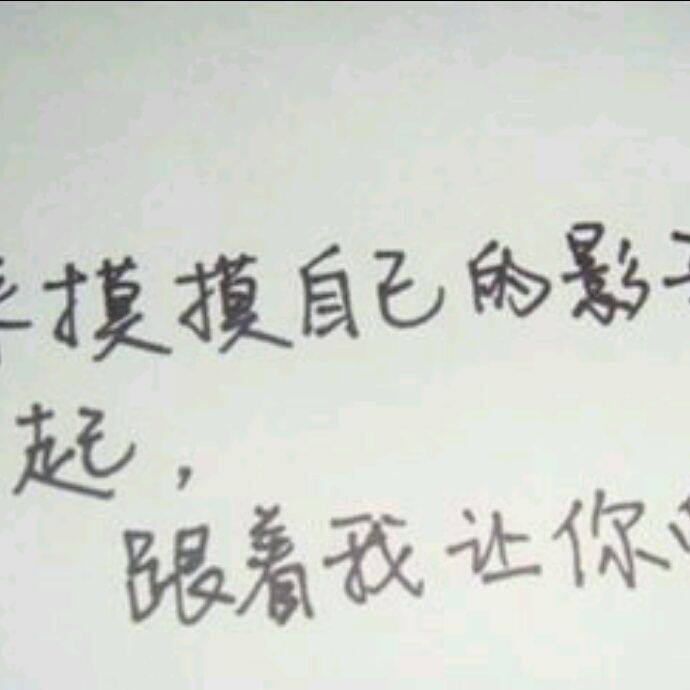 摸摸自己的影
起，
跟着我让你